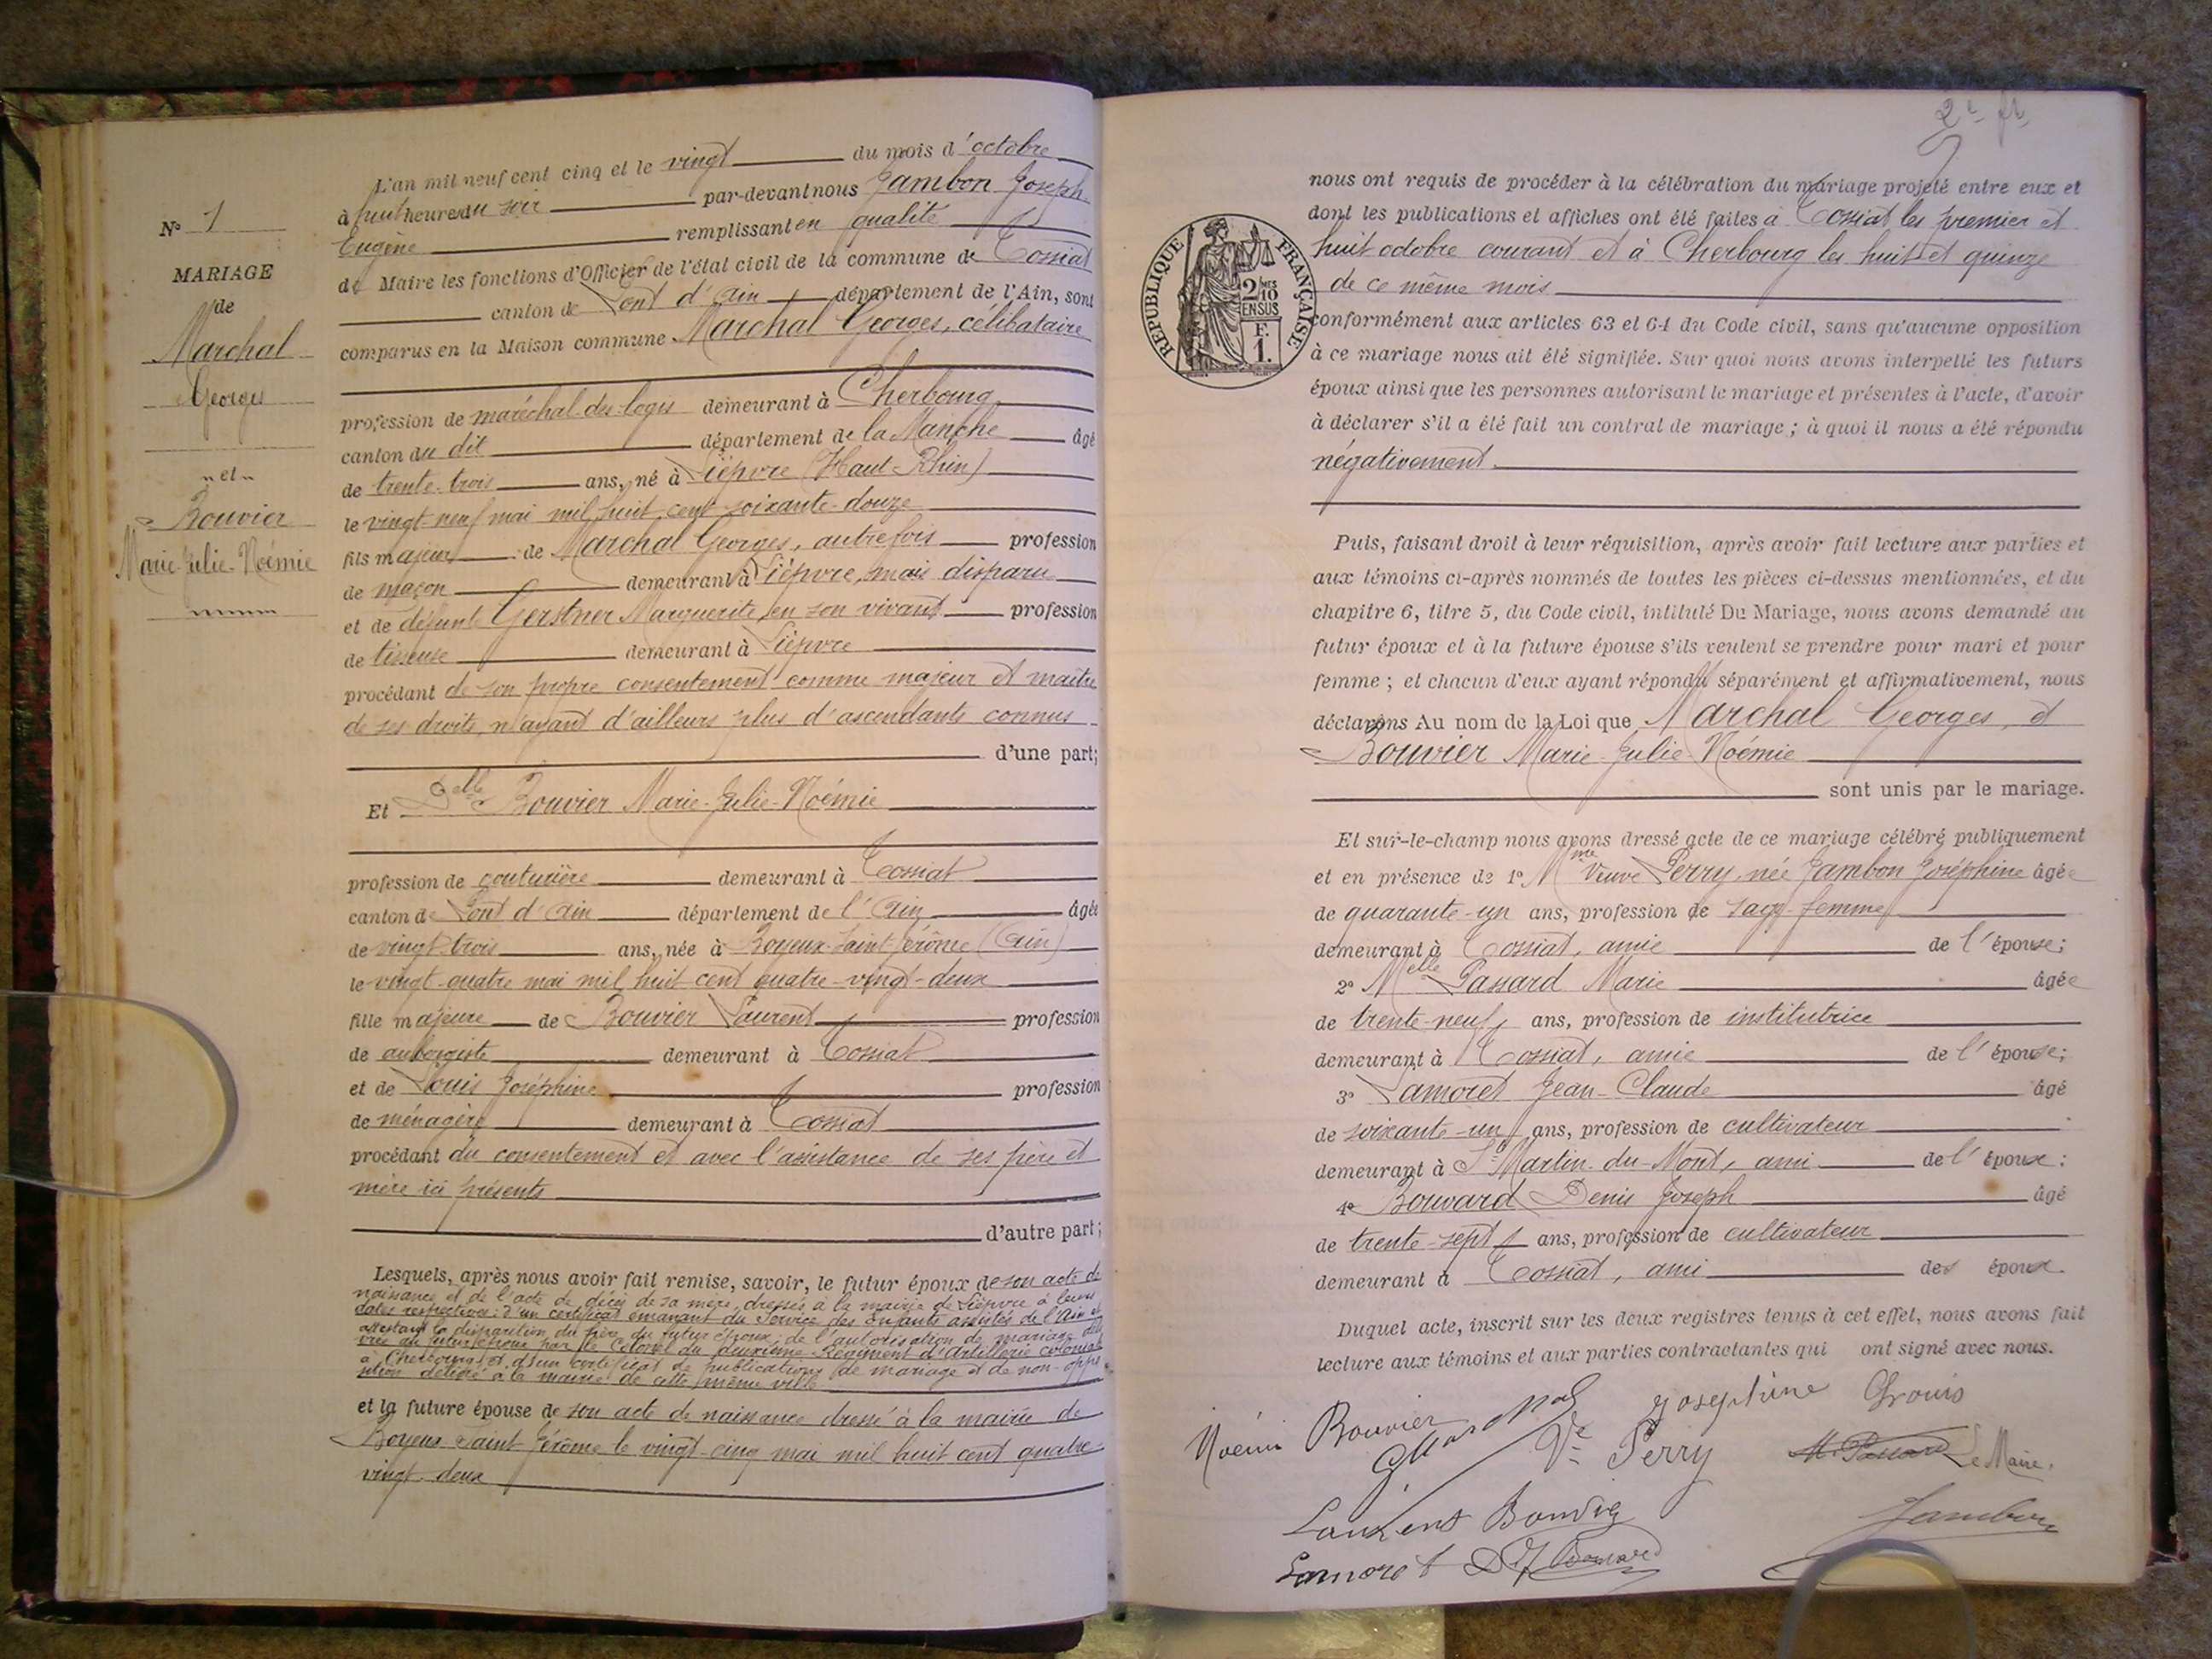 N° 1
MARIAGE
de
Marchal
Georges
" et "
Bouvier
Marie-Julie-Noémie
L'an mil neuf cent cinq et le vingt du mois d'octobre
à huit heures du soir par-devant nous Jambon Joseph
Eugène remplissant en qualité
de Maire les fonctions d'Officier de l'état civil de la commune de Tossiat
canton de Pont d'Ain département de l'Ain, sont
comparus en la Maison commune Marchal Georges, célibataire
profession de maréchal-des-logis demeurant à Cherbourg
canton du dit département de la Manche âgé
de trente-trois ans, né à Lièpvre (Haut-Rhin)
le vingt-neuf mai mil huit cent soixante-douze
fils majeur de Marchal Georges, autrefois profession
de maçon demeurant à Lièpvre, mais disparu
et de défunte Gerstner Marguerite, en son vivant profession
de tisseuse demeurant à Lièpvre
procédant de son propre consentement comme majeur et maître
de ses droits, n'ayant d'ailleurs plus d'ascendants connus
d'une part;
Et Delle Bouvier Marie-Julie-Noémie
profession de couturière demeurant à Tossiat
canton de Pont d'Ain département de l'Ain âgée
de vingt-trois ans, née à Boyeux-Saint-Jérôme (Ain)
le vingt-quatre mai mil huit cent quatre-vingt-deux
fille majeure de Bouvier Laurent profession
de aubergiste demeurant à Tossiat
et de Louis Joséphine profession
de ménagère demeurant à Tossiat
procédant du consentement et avec l'assistance de ses père et
mère ici présents
d'autre part;
Lesquels, après nous avoir fait remise, savoir, le futur époux de son acte de
naissance et de l'acte de décès de sa mère, dressés à la mairie de Lièpvre à leurs
dates respectives; d'un certificat émanant du Service des Enfants assistés de l'Ain et
attestant la disparition du père du futur époux, de l'autorisation de mariage déli
vrée au futur époux par le Colonel du deuxième Régiment d'Artillerie coloniale
à Cherbourg et d'un certificat de publications de mariage et de non-oppo
sition délivré à la mairie de cette même ville
et la future épouse de son acte de naissance dressé à la mairie de
Boyeux Saint-Jérôme le vingt-cinq mai mil huit cent quatre
vingt-deux
2e ft
RÉPUBLIQUE FRANÇAISE
2 MES
10
EN SUS
F.
1.
nous ont requis de procéder à la célébration du mariage projeté entre eux et
dont les publications et affiches ont été faites à Tossiat les premier et
huit octobre courant et à Cherbourg les huit et quinze
de ce même mois
conformément aux articles 63 et 64 du Code civil, sans qu'aucune opposition
à ce mariage nous ait été signifiée. Sur quoi nous avons interpellé les futurs
époux ainsi que les personnes autorisant le mariage et présentes à l'acte, d'avoir
à déclarer s'il a été fait un contrat de mariage; à quoi il nous a été répondu
négativement.
Puis, faisant droit à leur réquisition, après avoir fait lecture aux parties et
aux témoins ci-après nommés de toutes les pièces ci-dessus mentionnées, et du
chapitre 6, titre 5, du Code civil, intitulé Du Mariage, nous avons demandé au
futur époux et à la future épouse s'ils veulent se prendre pour mari et pour
femme; et chacun d'eux ayant répondu séparément et affirmativement, nous
déclarons Au nom de la Loi que Marchal Georges, et
Bouvier Marie-Julie-Noémie
sont unis par le mariage.
Et sur-le-champ nous avons dressé acte de ce mariage célébré publiquement
et en présence de 1° Mme Veuve Perry, née Jambon Joséphine âgée
de quarante-un ans, profession de sage-femme
demeurant à Tossiat, amie de l'épouse;
2° Melle Passard Marie âgée
de trente-neuf ans, profession de institutrice
demeurant à Tossiat, amie de l'épouse;
3° Lamoret Jean-Claude âgé
de soixante-un ans, profession de cultivateur
demeurant à St Martin-du-Mont, ami de l'épouse;
4° Bouvard Denis Joseph âgé
de trente-sept ans, profession de cultivateur
demeurant à Tossiat, ami des époux.
Duquel acte, inscrit sur les deux registres tenus à cet effet, nous avons fait
lecture aux témoins et aux parties contractantes qui ont signé avec nous.
Noémie Bouvier Josephine Louis
Ve Perry M. Passard Le Maire,
Laurent Bouvier Jambon
Lamoret D J Bouvard